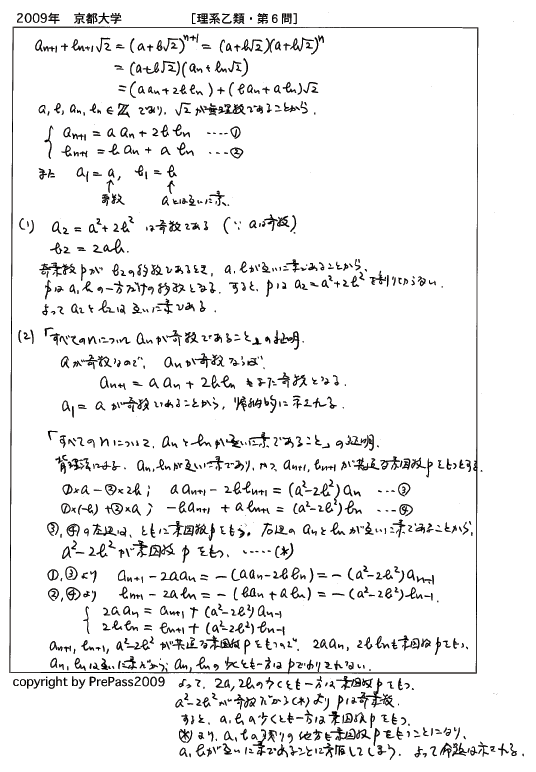 2009年 京都大学 [理系乙類・第6問]
aₙ₊₁ + bₙ₊₁√2 = (a+b√2)ⁿ⁺¹ = (a+b√2)(a+b√2)ⁿ
= (a+b√2)(aₙ+bₙ√2)
= (aaₙ+2bbₙ) + (baₙ+abₙ)√2
a, b, aₙ, bₙ ∈ Z であり、√2が無理数であることから、
aₙ₊₁ = a aₙ + 2b bₙ ····①
bₙ₊₁ = b aₙ + a bₙ ····②
また a₁ = a, b₁ = b
奇数 aとは互いに素.
(1) a₂ = a²+2b² は奇数である (∵ aは奇数)
b₂ = 2ab.
奇素数pがb₂の約数であるとき、a, bが互いに素であることから、
pはa, bの一方だけの約数となる. すると、pはa₂=a²+2b²を割り切らない.
よってa₂とb₂は互いに素である.
(2) 「すべてのnについてaₙが奇数であること」の証明.
aが奇数なので、aₙが奇数ならば、
aₙ₊₁ = a aₙ + 2b bₙ もまた奇数となる.
a₁ = a が奇数であることから、帰納的に示される.
「すべてのnについて、aₙとbₙが互いに素であること」の証明.
背理法による. aₙ, bₙが互いに素であり、かつ、aₙ₊₁, bₙ₊₁が共通な素因数pをもつとする.
①×a − ②×2b ; a aₙ₊₁ − 2b bₙ₊₁ = (a²−2b²)aₙ ···③
①×(−b) + ②×a ; −b aₙ₊₁ + a bₙ₊₁ = (a²−2b²)bₙ ···④
③, ④の左辺は、ともに素因数pをもつ. 右辺のaₙとbₙが互いに素であることから、
a²−2b²が素因数pをもつ. ·····(*)
①, ③より aₙ₊₁ − 2aaₙ = −(aaₙ−2bbₙ) = −(a²−2b²)aₙ₋₁
②, ④より bₙ₊₁ − 2abₙ = −(baₙ+abₙ) = −(a²−2b²)bₙ₋₁.
2aaₙ = aₙ₊₁ + (a²−2b²)aₙ₋₁
2bbₙ = bₙ₊₁ + (a²−2b²)bₙ₋₁
aₙ₊₁, bₙ₊₁, a²−2b²が共通な素因数pをもつので、2aaₙ, 2bbₙも素因数pをもつ.
aₙ, bₙは互いに素だから、aₙ, bₙの少くとも一方はpでわりきれない.
copyright by PrePass2009
よって、2a, 2bの少くとも一方は素因数pをもつ.
a²−2b²が奇数だから(*)よりpは奇素数.
すると、a, bの少くとも一方は素因数pをもつ.
(*)より、a, bの残りの他方も素因数pをもつことになり、
a, bが互いに素であることに矛盾してしまう. よって命題は示された.